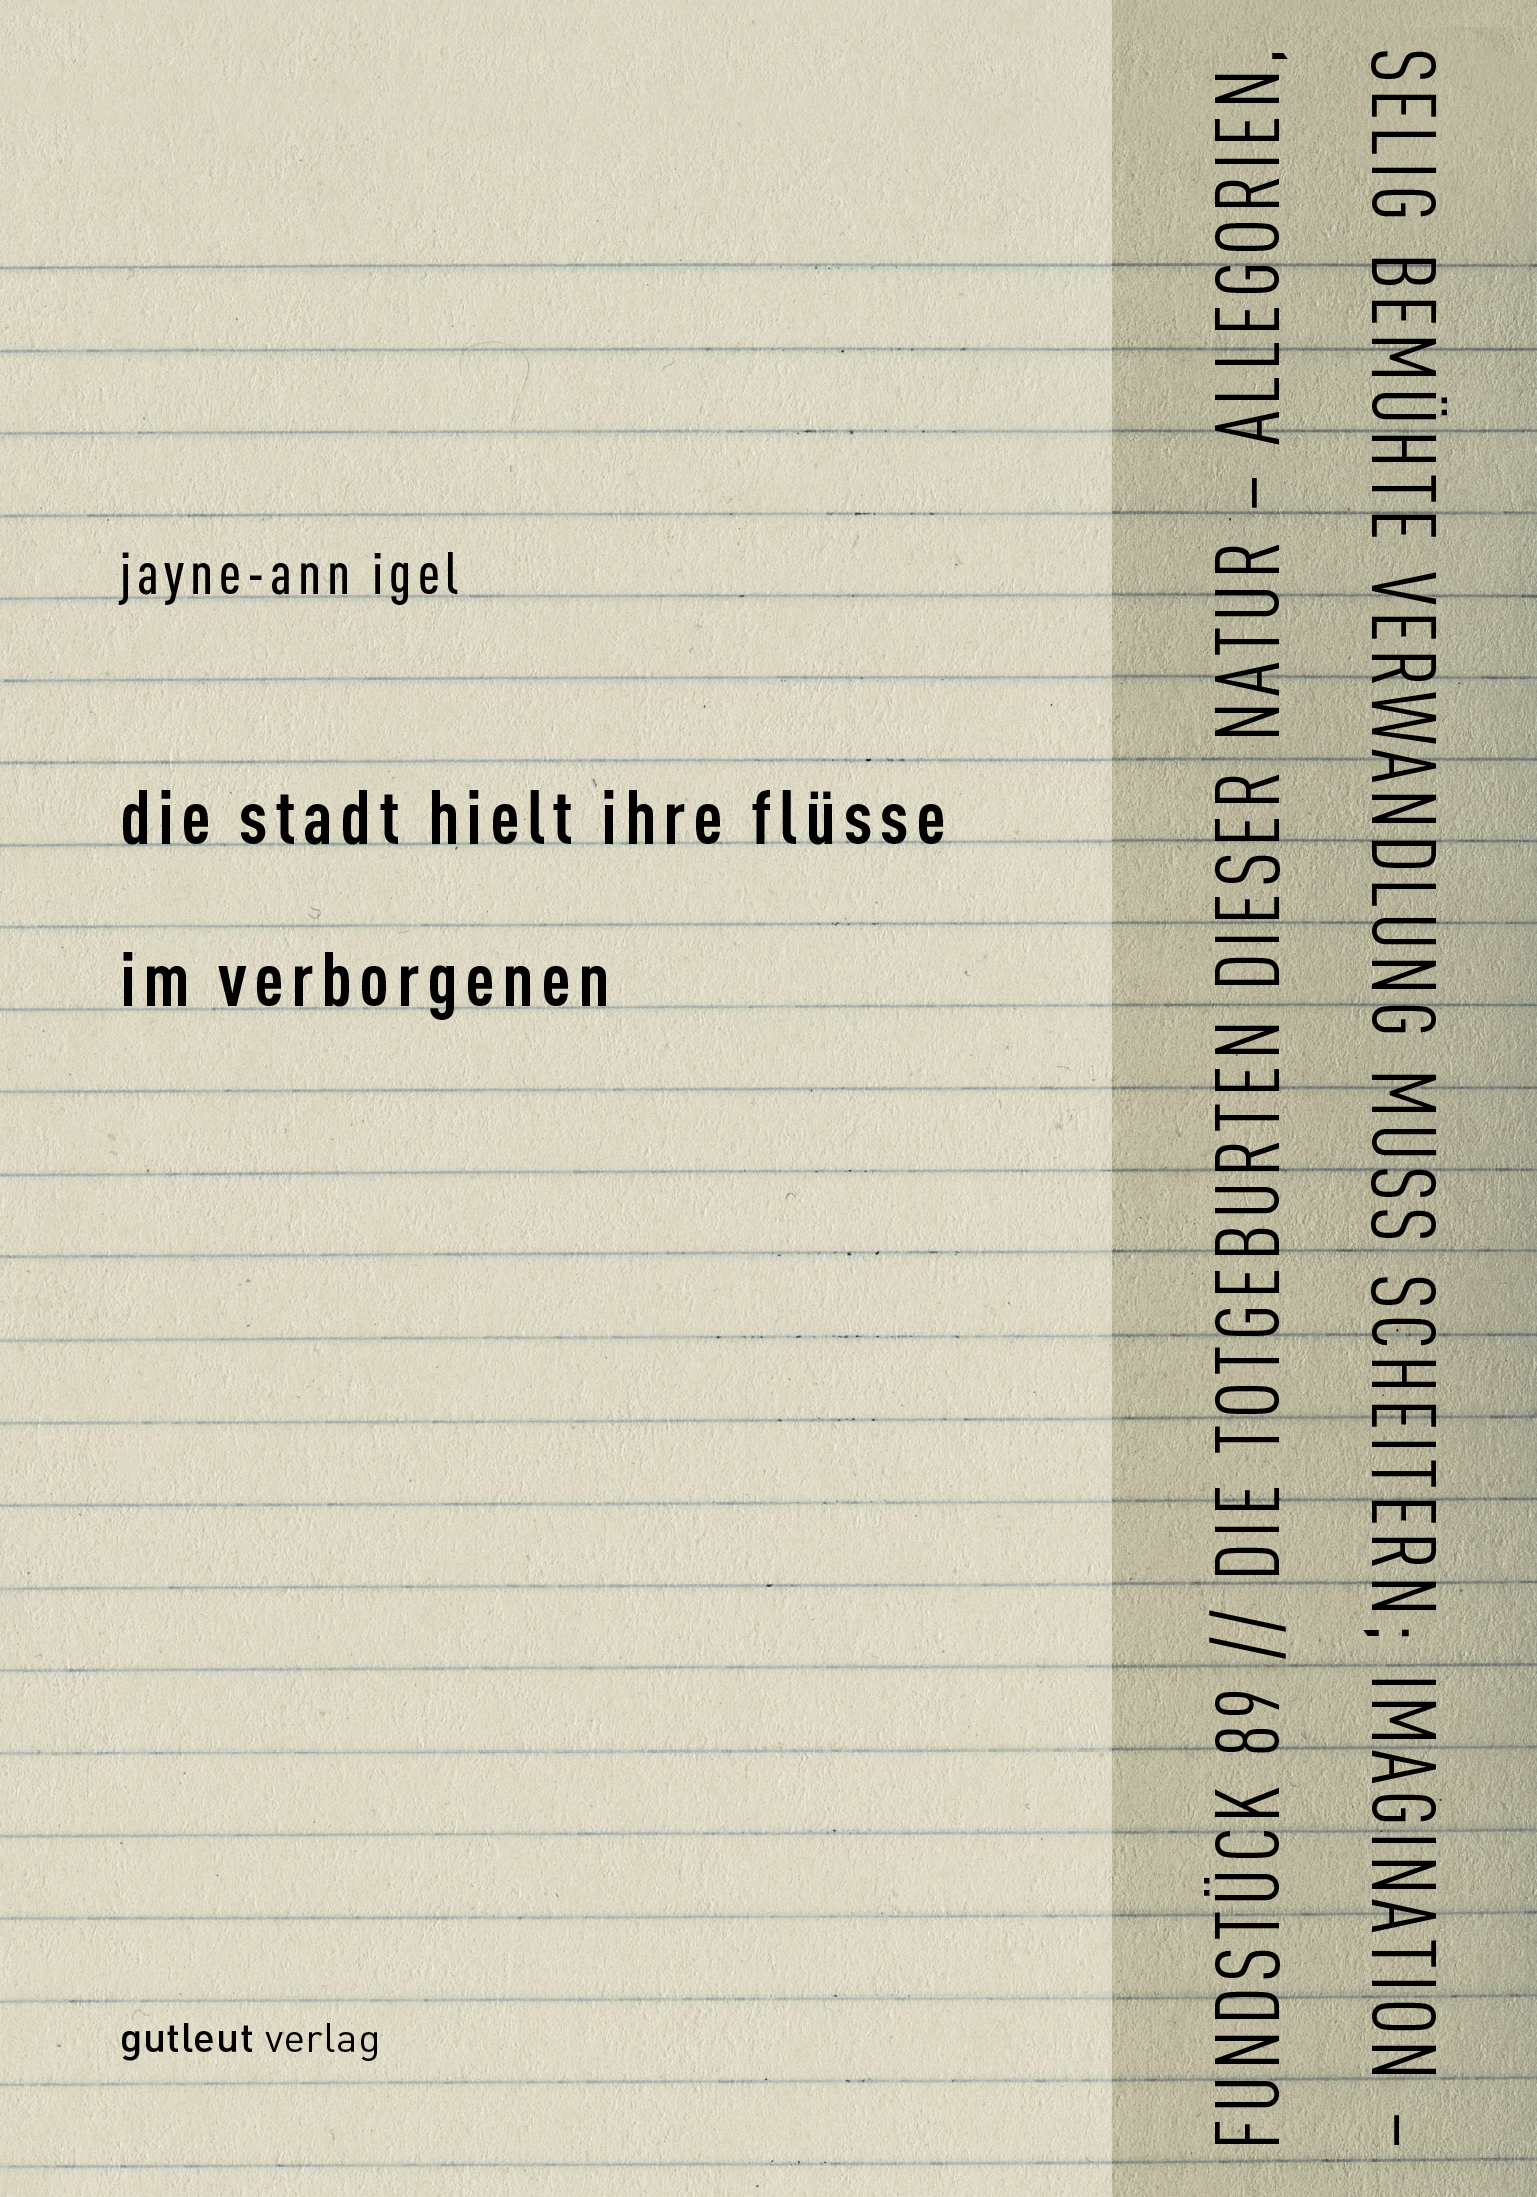 jayne-ann igel
die stadt hielt ihre flüsse
im verborgenen
gutleut verlag
FUNDSTÜCK 89 // DIE TOTGEBURTEN DIESER NATUR – ALLEGORIEN,
SELIG BEMÜHTE VERWANDLUNG MUSS SCHEITERN; IMAGINATION –